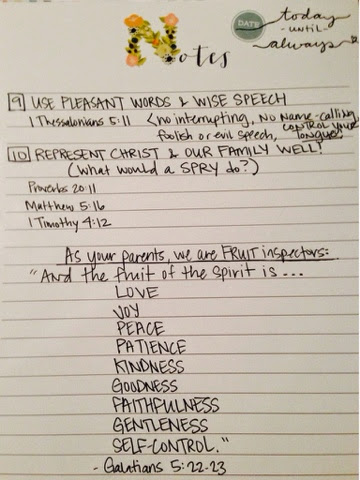 Notes
DATE today
- UNTIL -
always
9 USE PLEASANT WORDS & WISE SPEECH
1 Thessalonians 5:11 (no interrupting, NO Name-calling,
foolish or evil speech, CONTROL YOUR
TONGUE)
10 REPRESENT CHRIST & OUR FAMILY WELL!
(What would a SPRY do?)
Proverbs 20:11
Matthew 5:16
1 Timothy 4:12
As your parents, we are FRUIT inspectors:
"And the fruit of the Spirit is ...
LOVE
JOY
PEACE
PATIENCE
KINDNESS
GOODNESS
FAITHFULNESS
GENTLENESS
SELF-CONTROL."
- Galatians 5:22-23